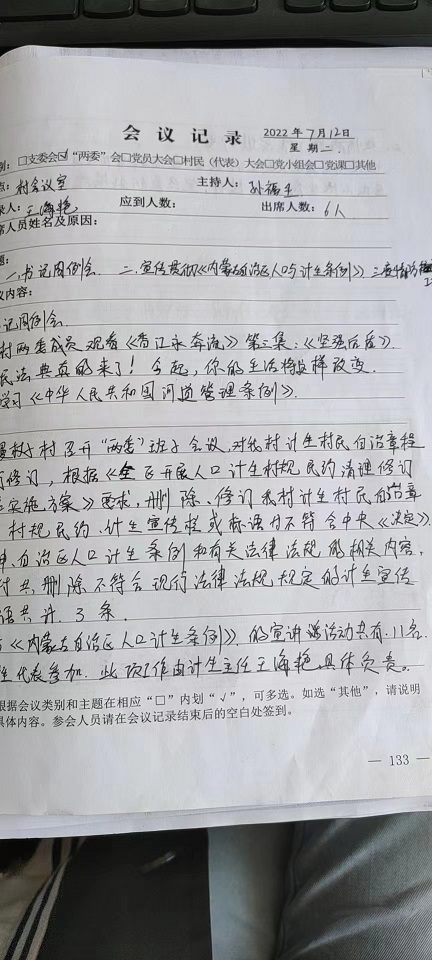 会 议 记 录 2022年7月12日
星期二
别：□支委会☑“两委”会□党员大会□村民（代表）大会□党小组会□党课□其他
点：村会议室 主持人：孙福
录人：王海艳 应到人数： 出席人数：6人
席人员姓名及原因：
题：
一、书记周例会. 二、宣传贯彻《内蒙古自治区人口与计生条例》三、疫情防控
议内容：
记周例会.
村两委成员观看《香江永奔流》第三集：《坚强后盾》.
民法典真的来了！今起，你的生活将这样改变.
学习《中华人民共和国河道管理条例》.
村召开“两委”班子会议，对我村计生村民自治章程
行修订，根据《全区开展人口计生村规民约清理修订
实施方案》要求，删除、修订我村计生村民自治章
村规民约、计生宣传栏或标语中不符合中央《决定》
自治区人口计生条例和有关法律法规的相关内容，
村共删除不符合现行法律法规规定的计生宣传
语共计 3 条.
《内蒙古自治区人口计生条例》的宣讲活动共有11名
代表参加. 此项工作由计生主任王海艳具体负责。
根据会议类别和主题在相应“□”内划“√”，可多选。如选“其他”，请说明
具体内容。参会人员请在会议记录结束后的空白处签到。
— 133 —